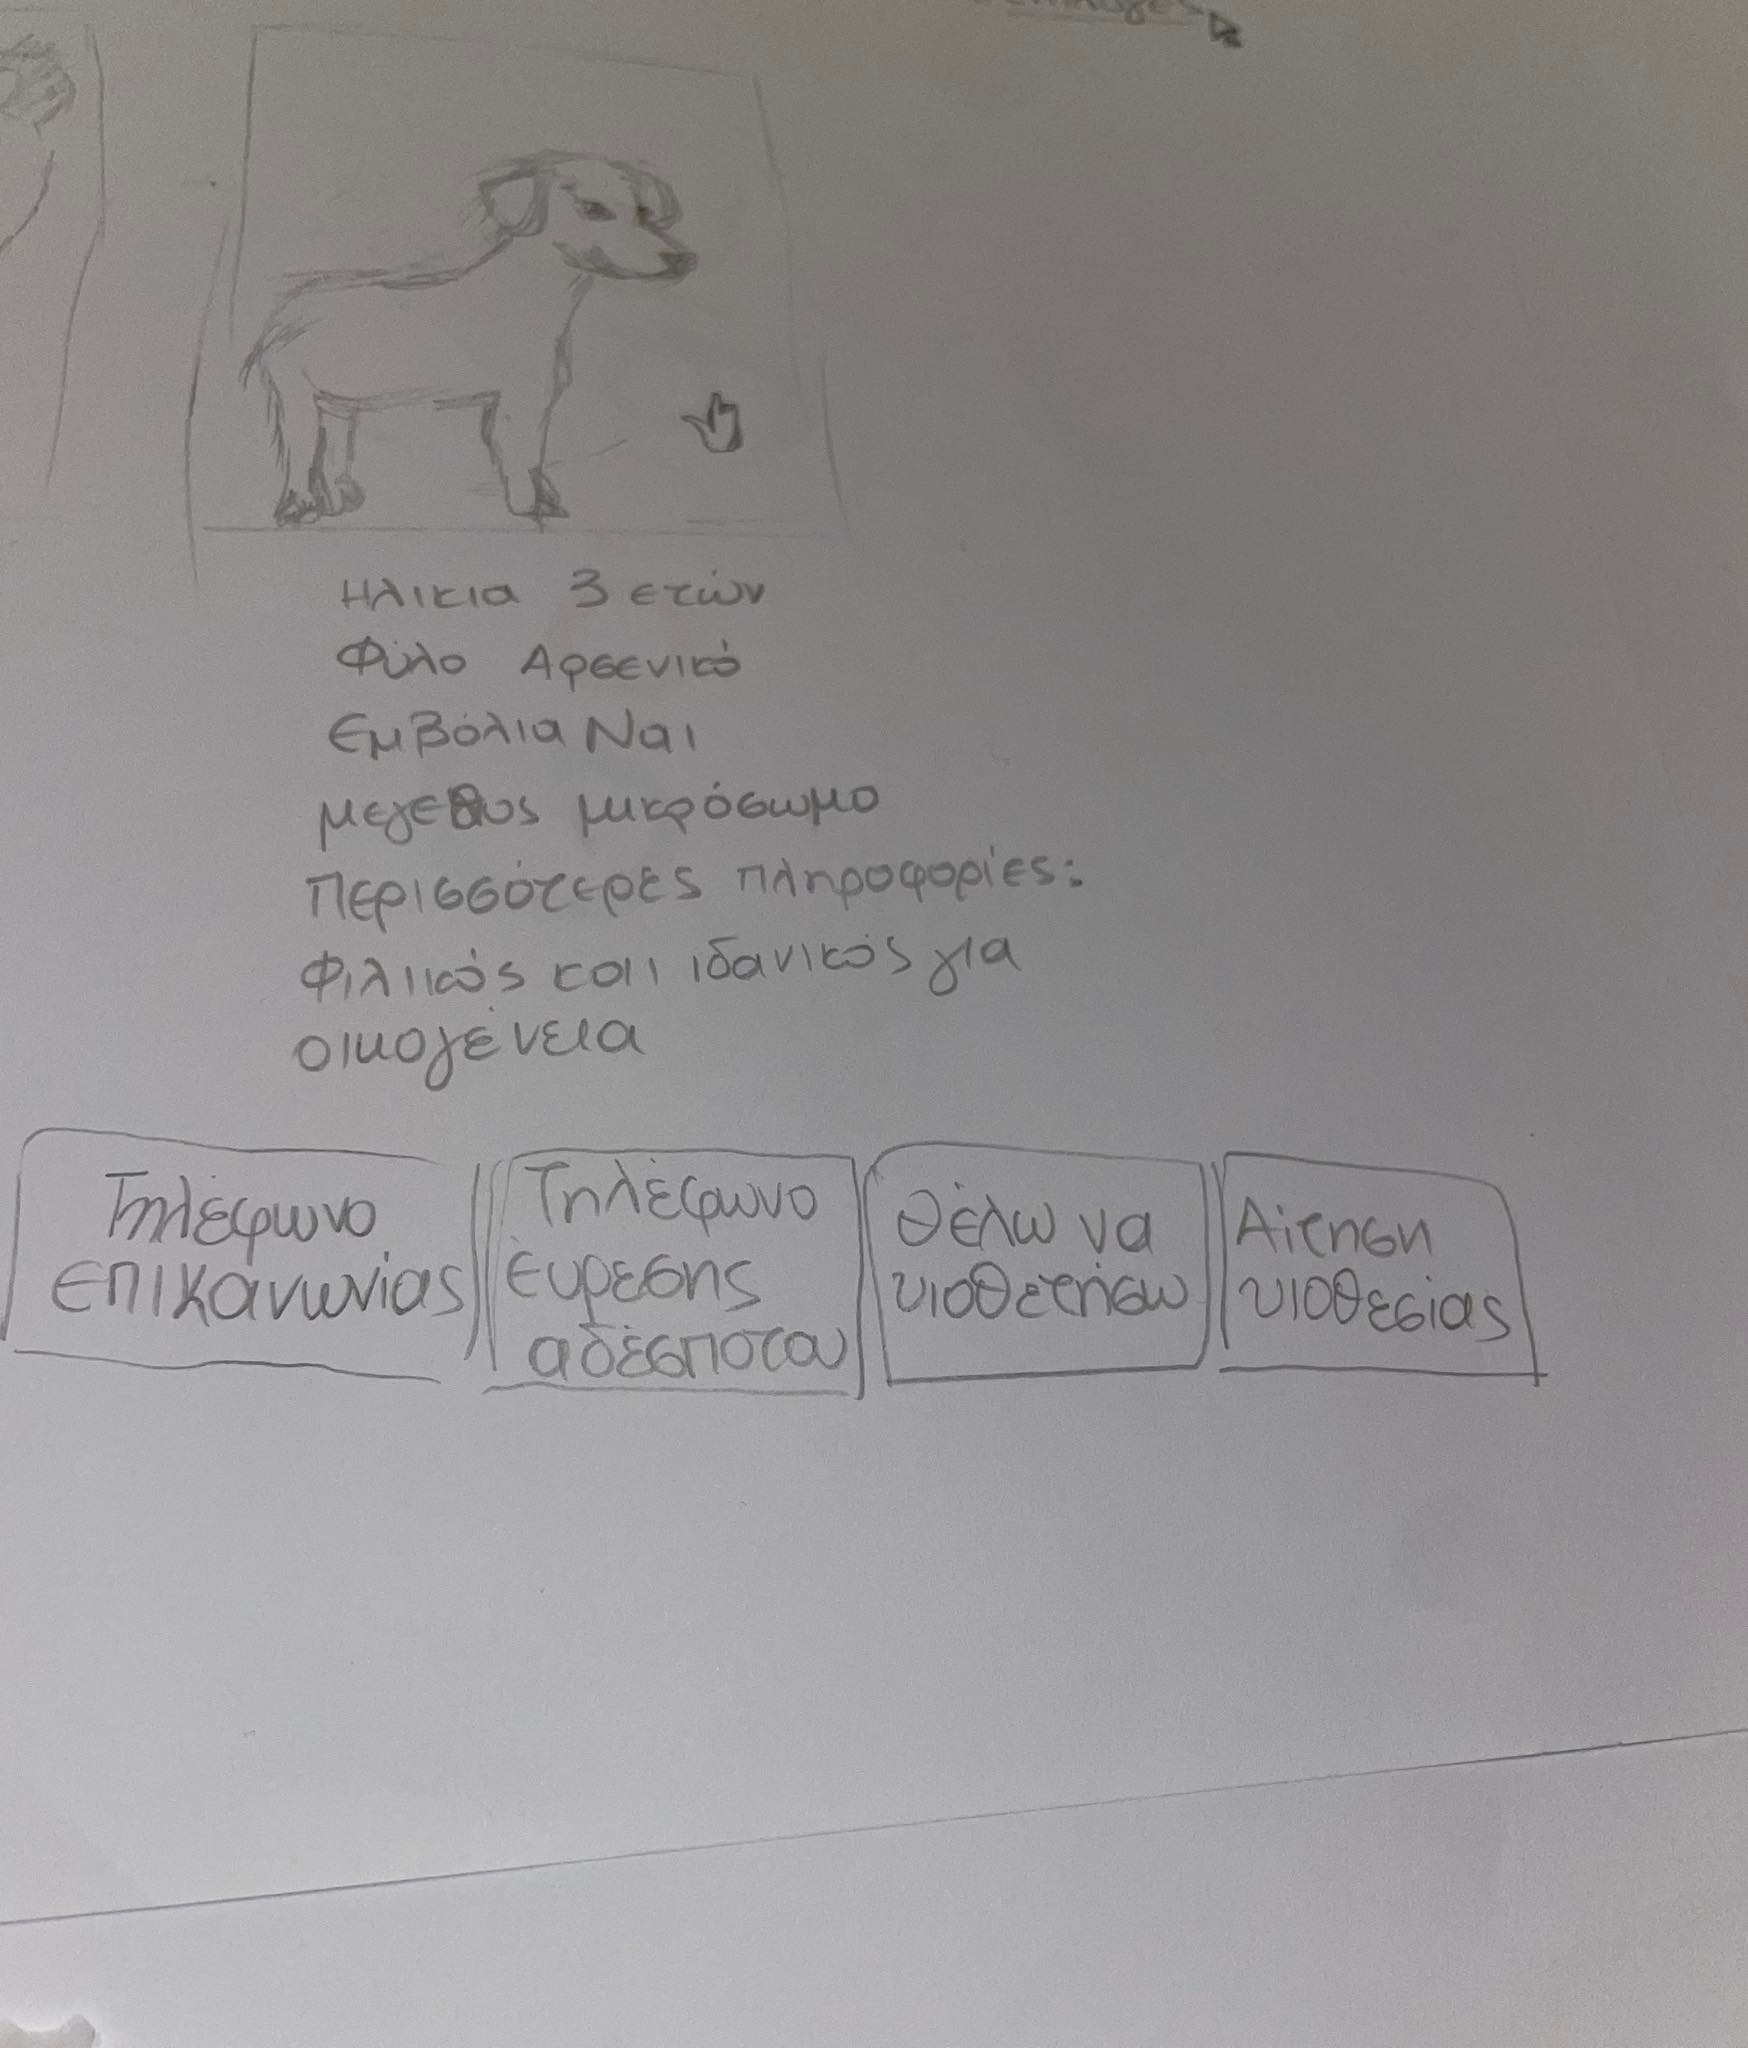 Ηλικια 3 ετών
Φύλο Αρσενικό
Εμβόλια Ναι
μεγεθος μικρόσωμο
Περισσότερες πληροφορίες:
Φιλικός και ιδανικός για
οικογένεια
Τηλέφωνο
επικανωνίας
Τηλέφωνο
έυρεσης
αδέσποτου
Θέλω να
υιοθετήσω
Αίτηση
υιοθεσίας